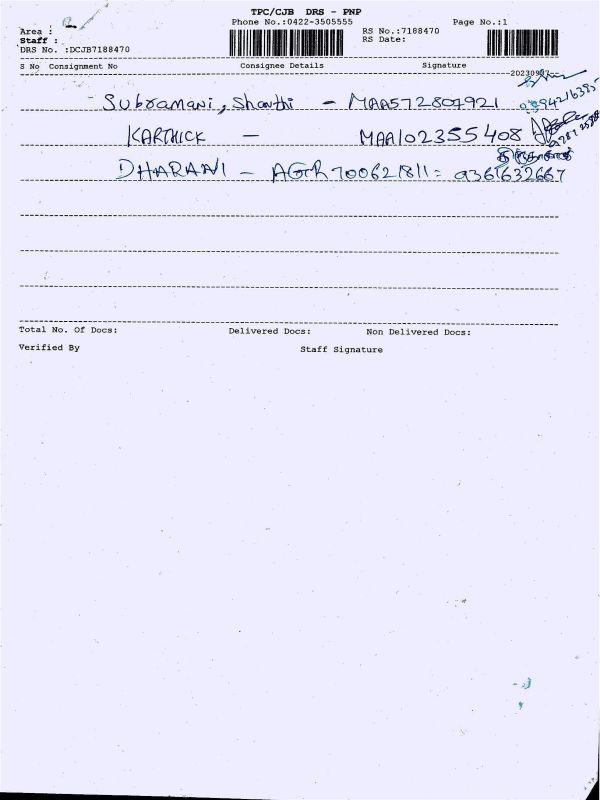 TPC/CJB DRS - PNP
Phone No.:0422-3505555 Page No.:1
Area :
Staff :
RS No.:7188470
RS Date:
DRS No. :DCJB7188470
S No Consignment No Consignee Details Signature
Subramani, Shanthi - MAA572804921
KARTHICK - MAA102355408
DHARANI - AGR700621811 = 9361632667
Total No. Of Docs: Delivered Docs: Non Delivered Docs:
Verified By Staff Signature